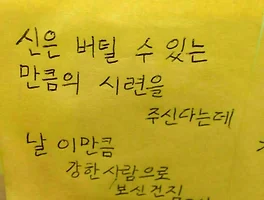 신은 버틸 수 있는
만큼의 시련을
주신다는데
날 이만큼
강한 사람으로
보신건지